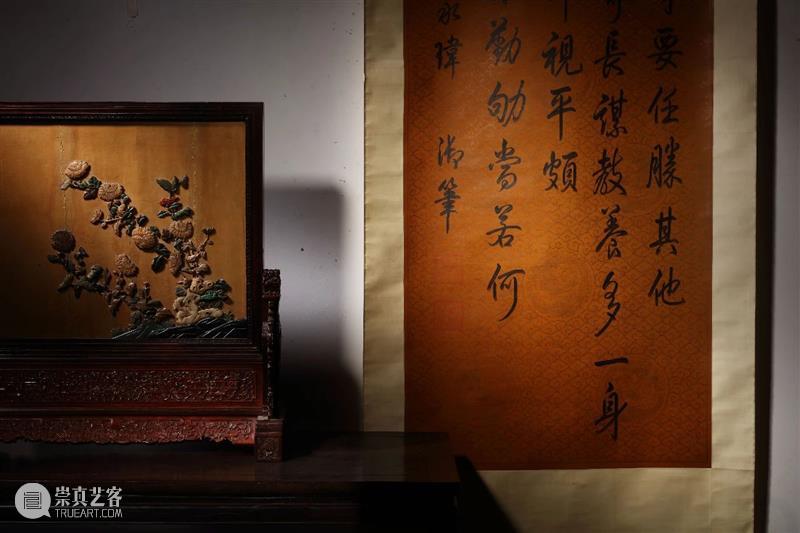 要任勝其他
長謀教養多一身
視平頗
勤劬當若何
永瑋 御筆
崇真艺客
TRUEART.COM